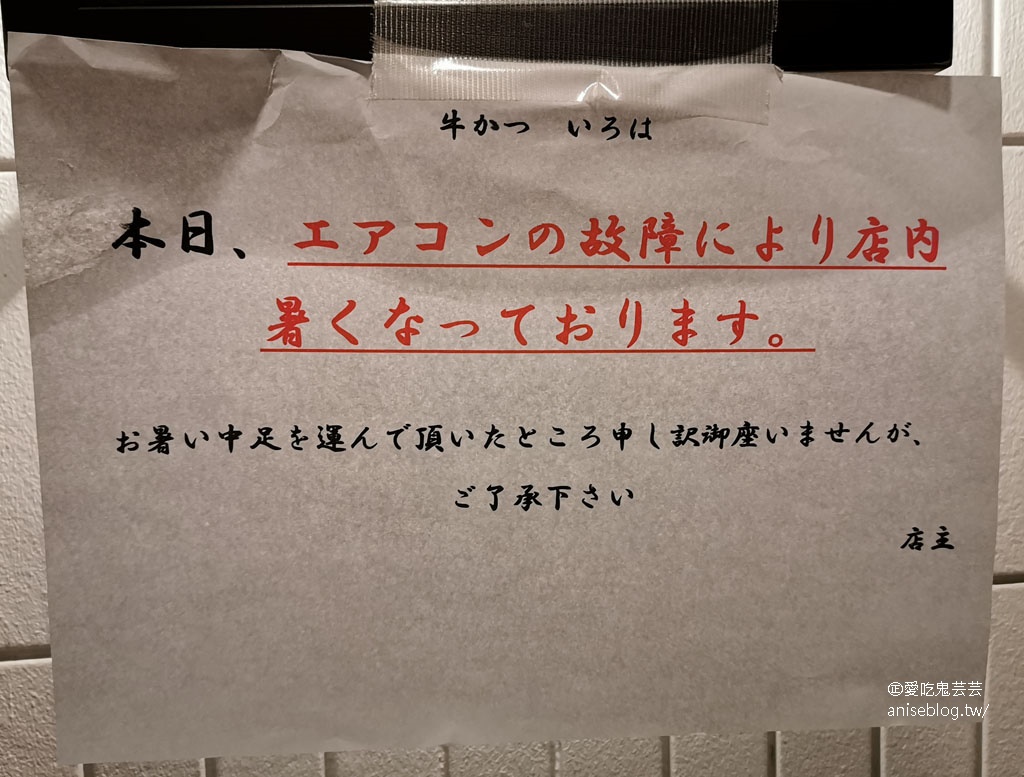 牛かつ　いろは
本日、エアコンの故障により店内
暑くなっております。
お暑い中足を運んで頂いたところ申し訳御座いませんが、
ご了承下さい
店主
㊣愛吃鬼芸芸
aniseblog.tw/